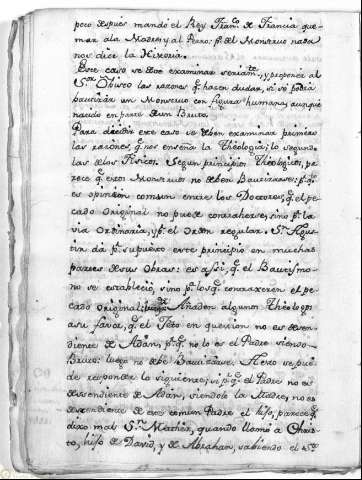 poco despues mandó el Rey Franco de Francia que-
mar ala Madre, y al Perro: pr del Monstruo nada
nos dice la Historia.
Este caso se debe examinar seriamte, y proponer al
Sor Obispo las razones q hacen dudar, si se podrá
bautizar un Monstruo con figura humana, aunque
nacido en parte de un Bruto.
Para decidir este caso se deben examinar primero
las razones, q nos enseña la Theologia; lo segundo
las delos Fisicos. Segun principios Theologicos, pa-
rece q estos Monstruos no deben Bautizarse: p.q.
es opinion comun entre los Doctores, q el pe-
cado Original no puede contraherse, sino pr la
via Ordinaria, y pr el Orden regular. Sn Agus-
tin dá pr supuesto este principio en muchas
partes de sus Obras: es asi, q el Bautismo
no se estableció, sino pr los q contraxeron el pe-
cado original: luego &. Añaden algunos Theologos
a su favor, q el Feto en question no es desen-
diente de Adan, p.q. no lo es el Padre siendo
Bruto: luego no debe Bautizarse. A esto se pue-
de responder lo siguiente; si p.q. el Padre no es
descendiente de Adán, siendolo la Madre, no es
descendiente de este comun Padre el hijo, parece q
dixo mal Sn Matheo, quando llamó a Chris-
to, hijo de David, y de Abrahan, sabiendo el